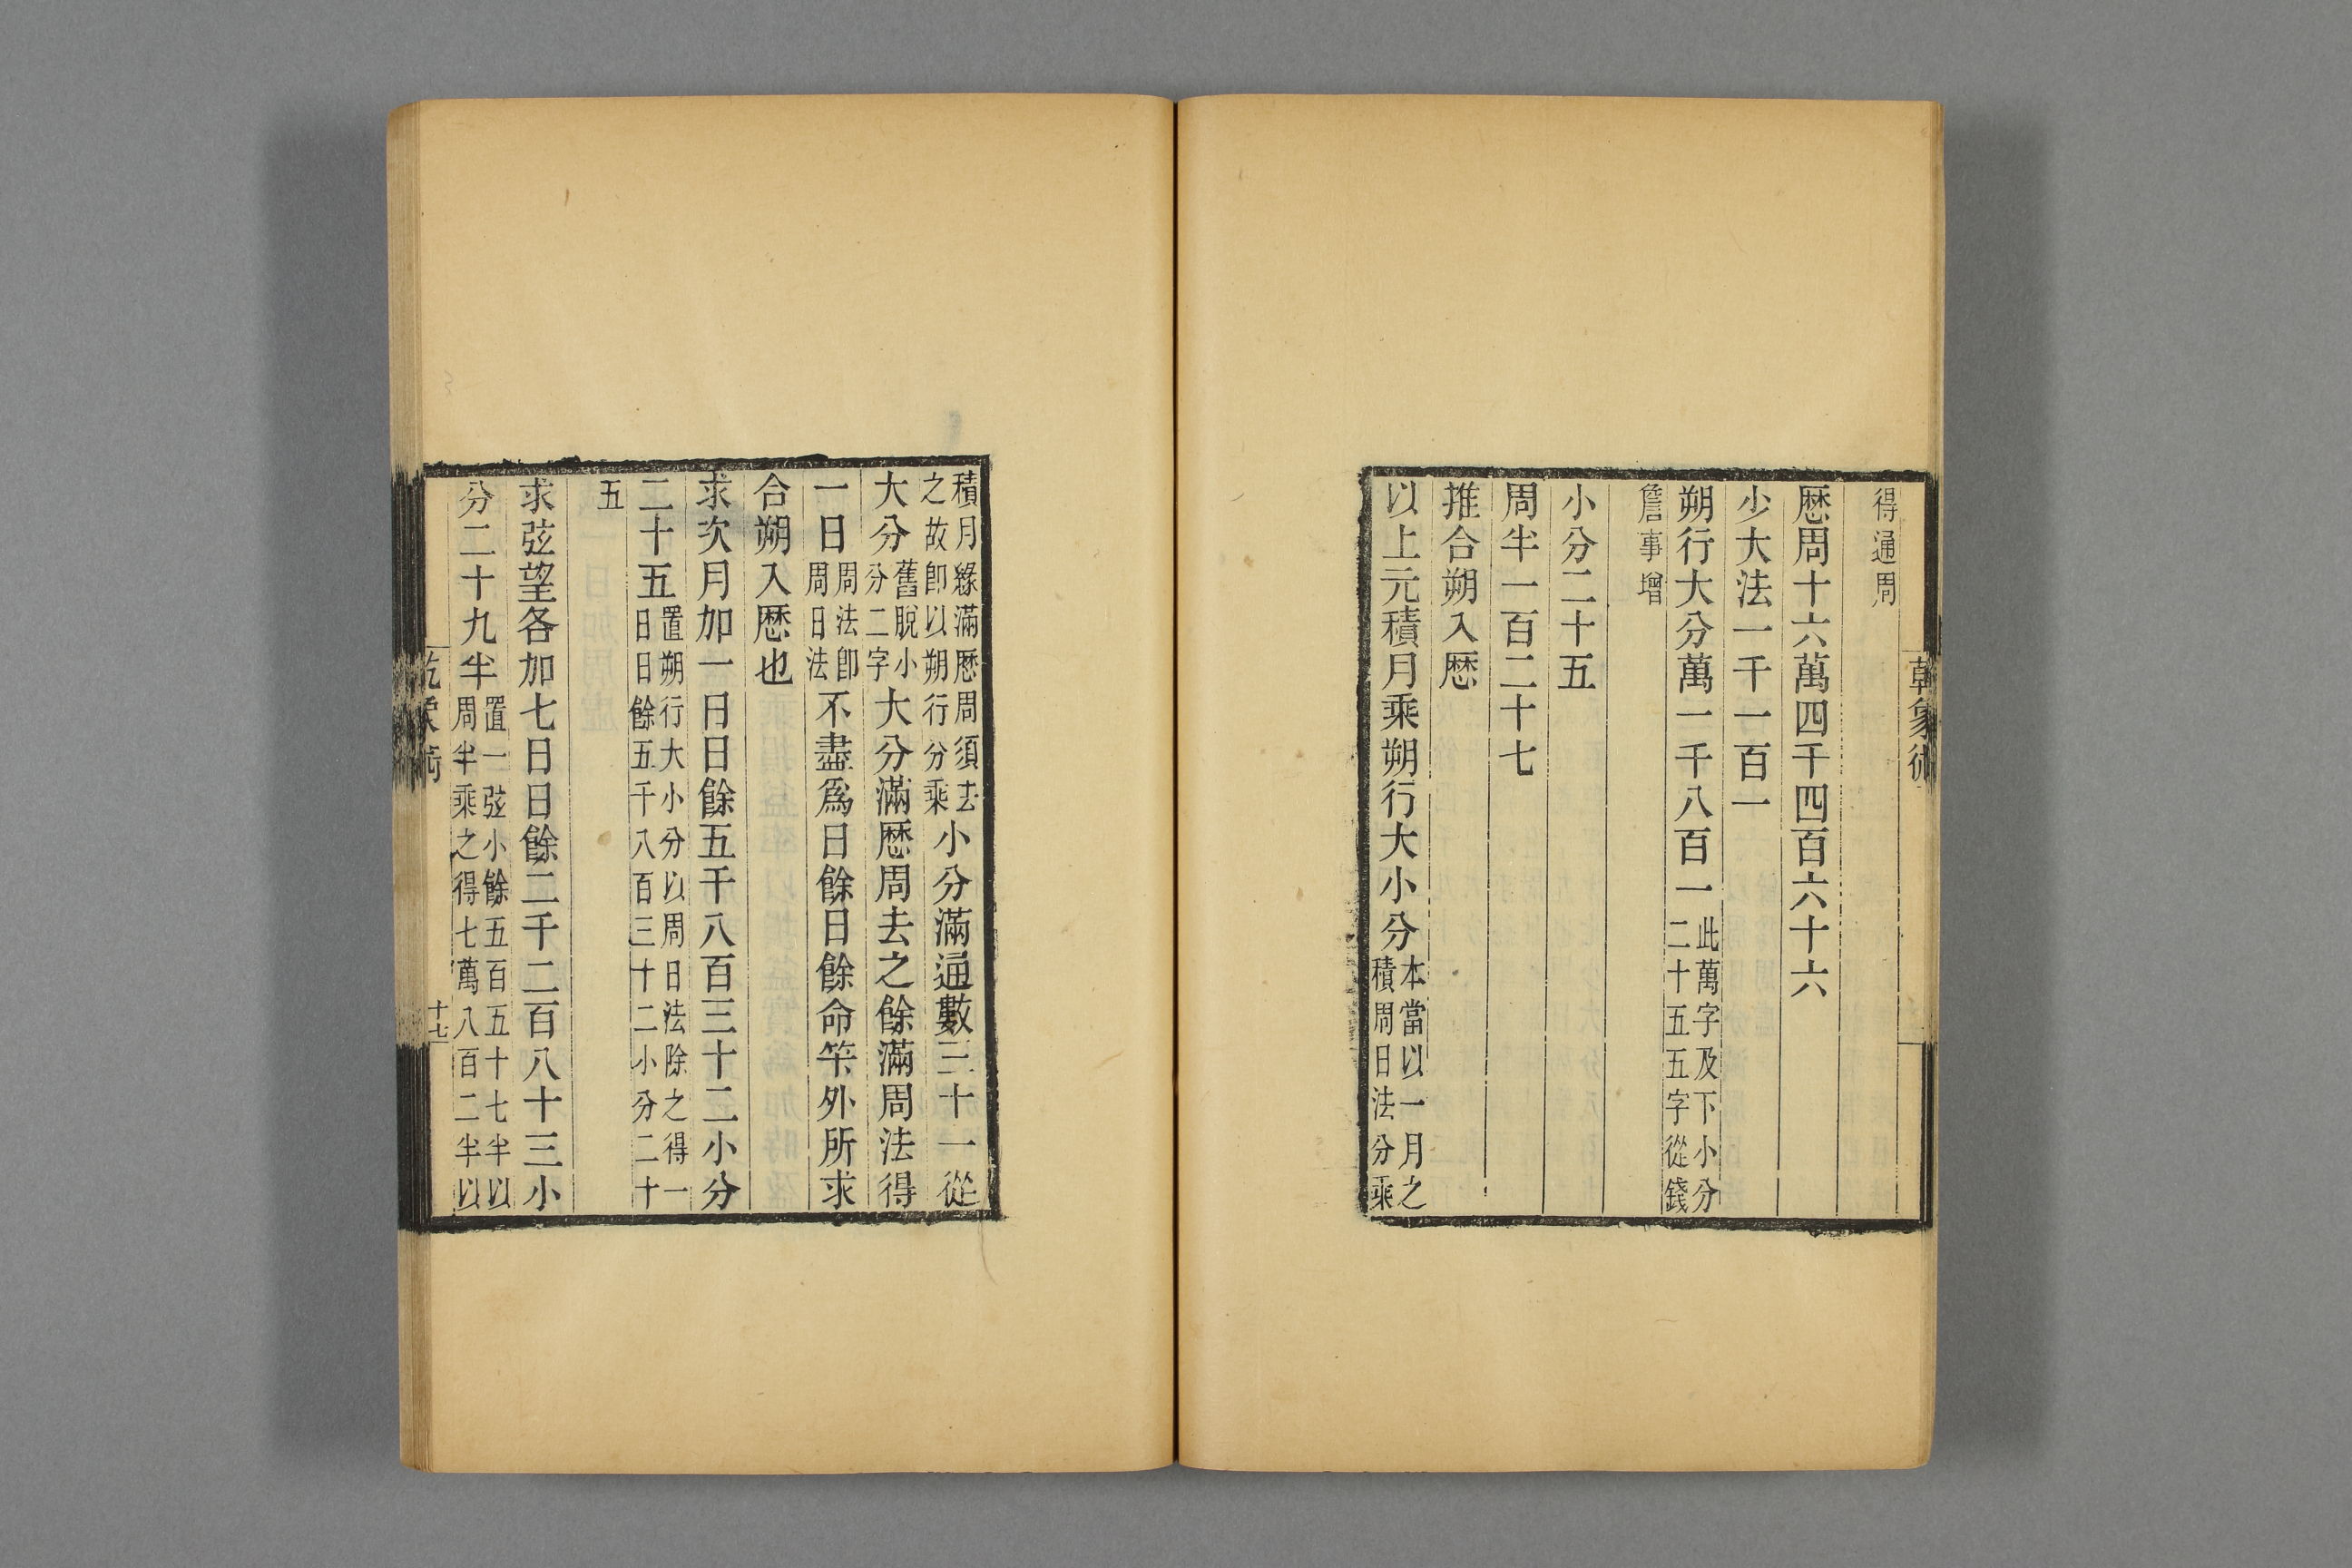 得通周
厯周十六萬四千四百六十六
少大法一千一百一
朔行大分萬一千八百一此萬字及下小分二十五五字從錢
詹事增
小分二十五
周半一百二十七
推合朔入厯
以上元積月乘朔行大小分本當以一月之積周日法分乘
乾象術
積月緣滿厯周須去之故卽以朔行分乘小分滿通數三十一從
大分舊脫小分二字大分滿厯周去之餘滿周法得
一日周法卽周日法不盡爲日餘日餘命筭外所求
合朔入厯也
求次月加一日日餘五千八百三十二小分
二十五置朔行大小分以周日法除之得一日日餘五千八百三十二小分二十
五
求弦望各加七日日餘二千二百八十三小
分二十九半置一弦小餘五百五十七半以周半乘之得七萬八百二半以
乾象術
十七